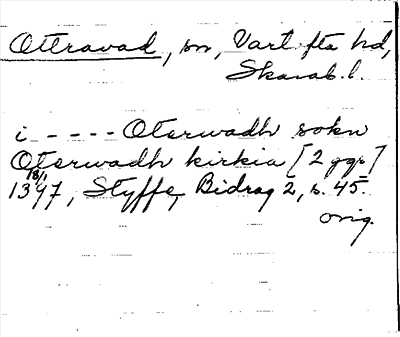 Ottravad, sn, Vartofta hd,
Skarab. l.
i ----- Oterwadh sokn
Oterwadh kirkia [2 ggr]
18/1
1397, Styffe, Bidrag 2, s. 45.
orig.